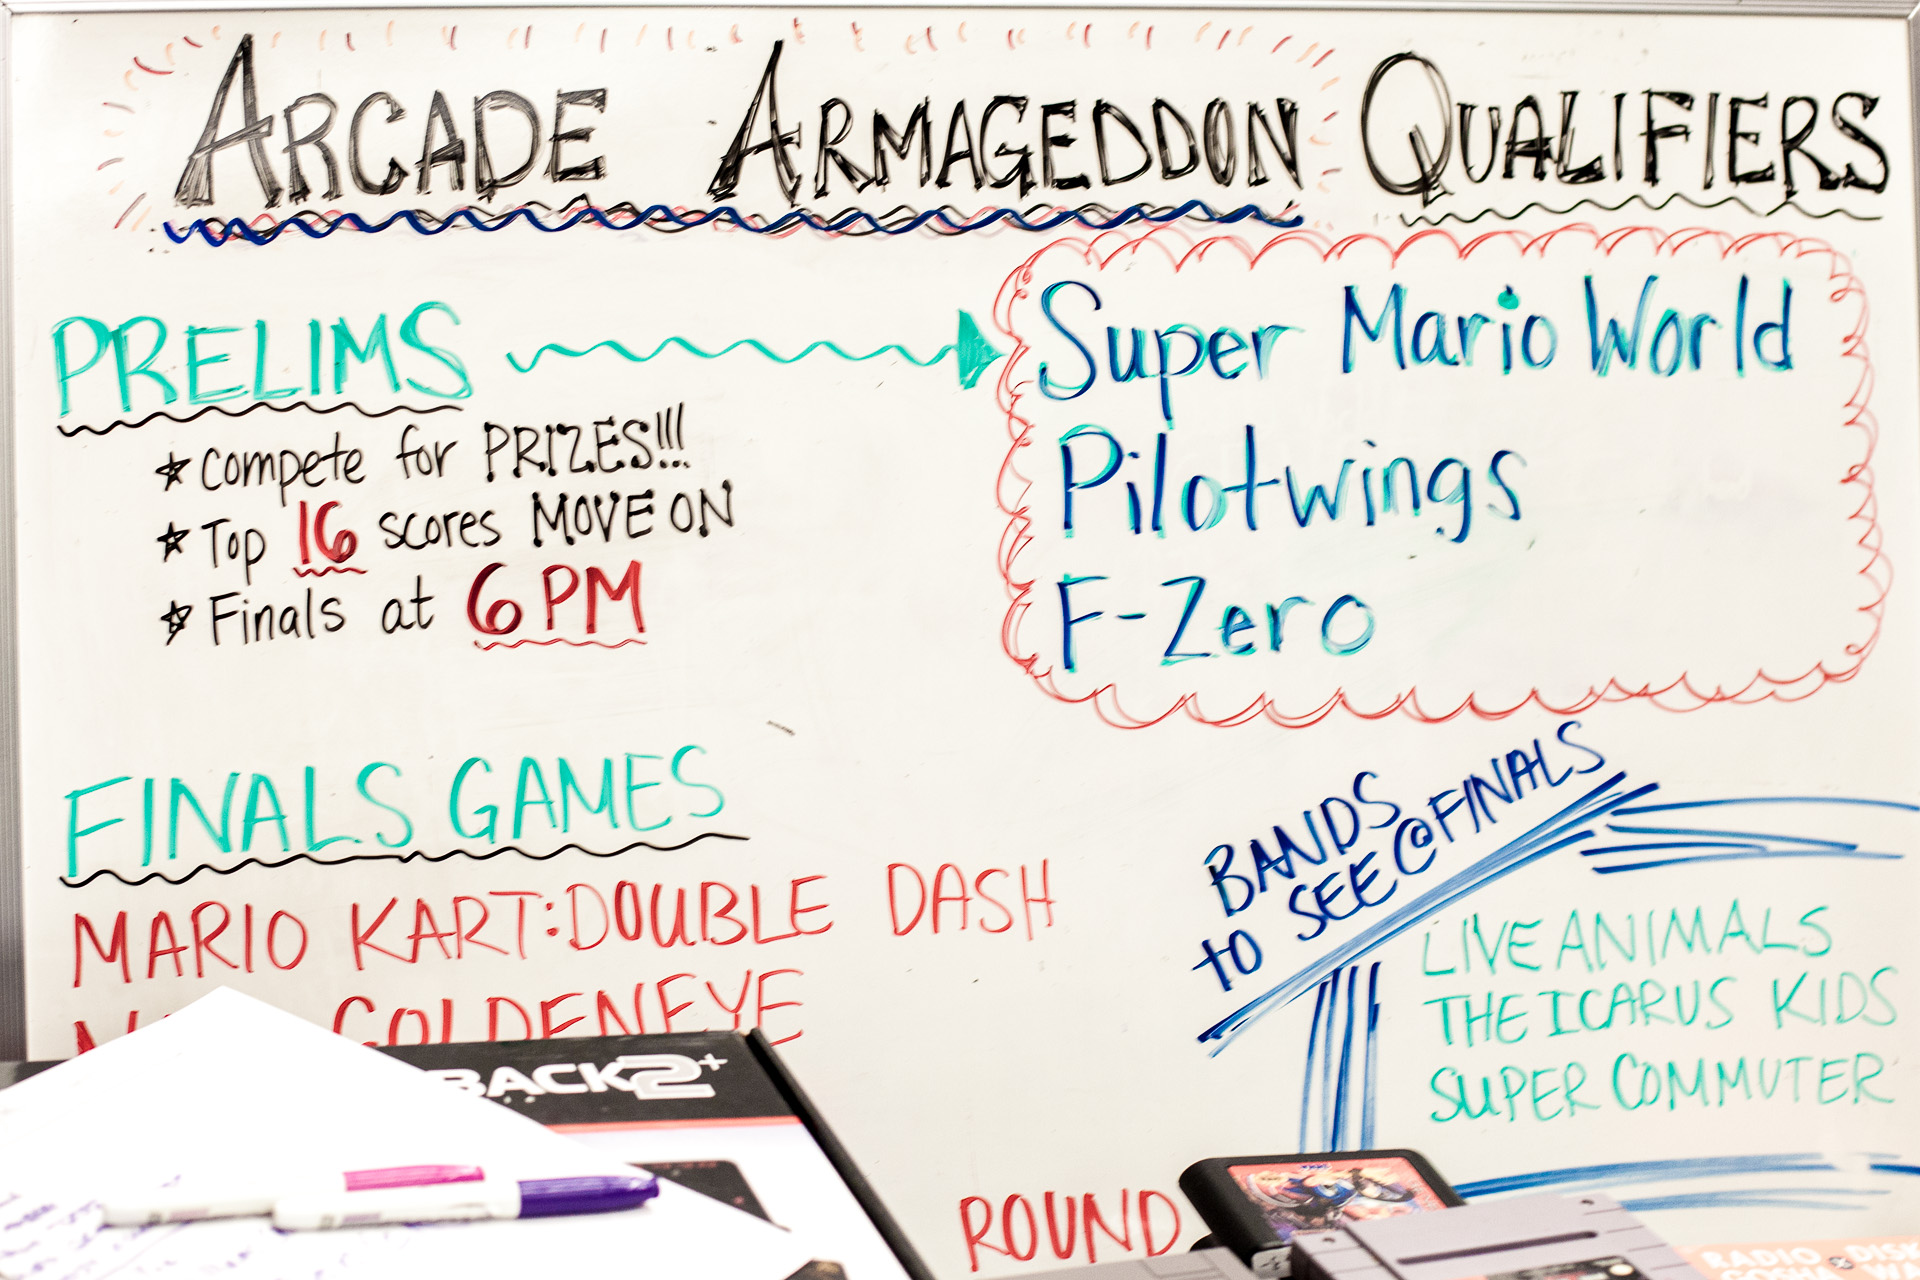 ARCADE ARMAGEDDON QUALIFIERS
PRELIMS
★ Compete for PRIZES!!!
★ Top 16 scores MOVE ON
★ Finals at 6 PM
Super Mario World
Pilotwings
F-Zero
FINALS GAMES
MARIO KART: DOUBLE DASH
GOLDENEYE
BANDS
to SEE @ FINALS
LIVE ANIMALS
THE ICARUS KIDS
SUPER COMMUTER
BACK2+
ROUND
RADIO DISK